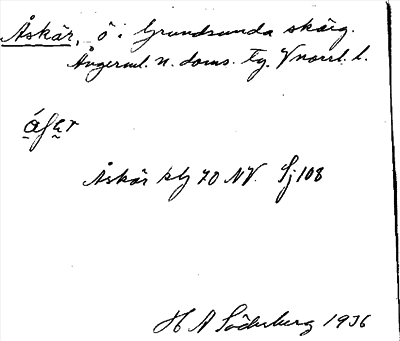 Åskär, ö i Grundsunda skärg.
Ångerml. n. doms. tg. Vnorrl. l.
Åskär blg 70 NV. Sj 108
H A Söderberg 1936